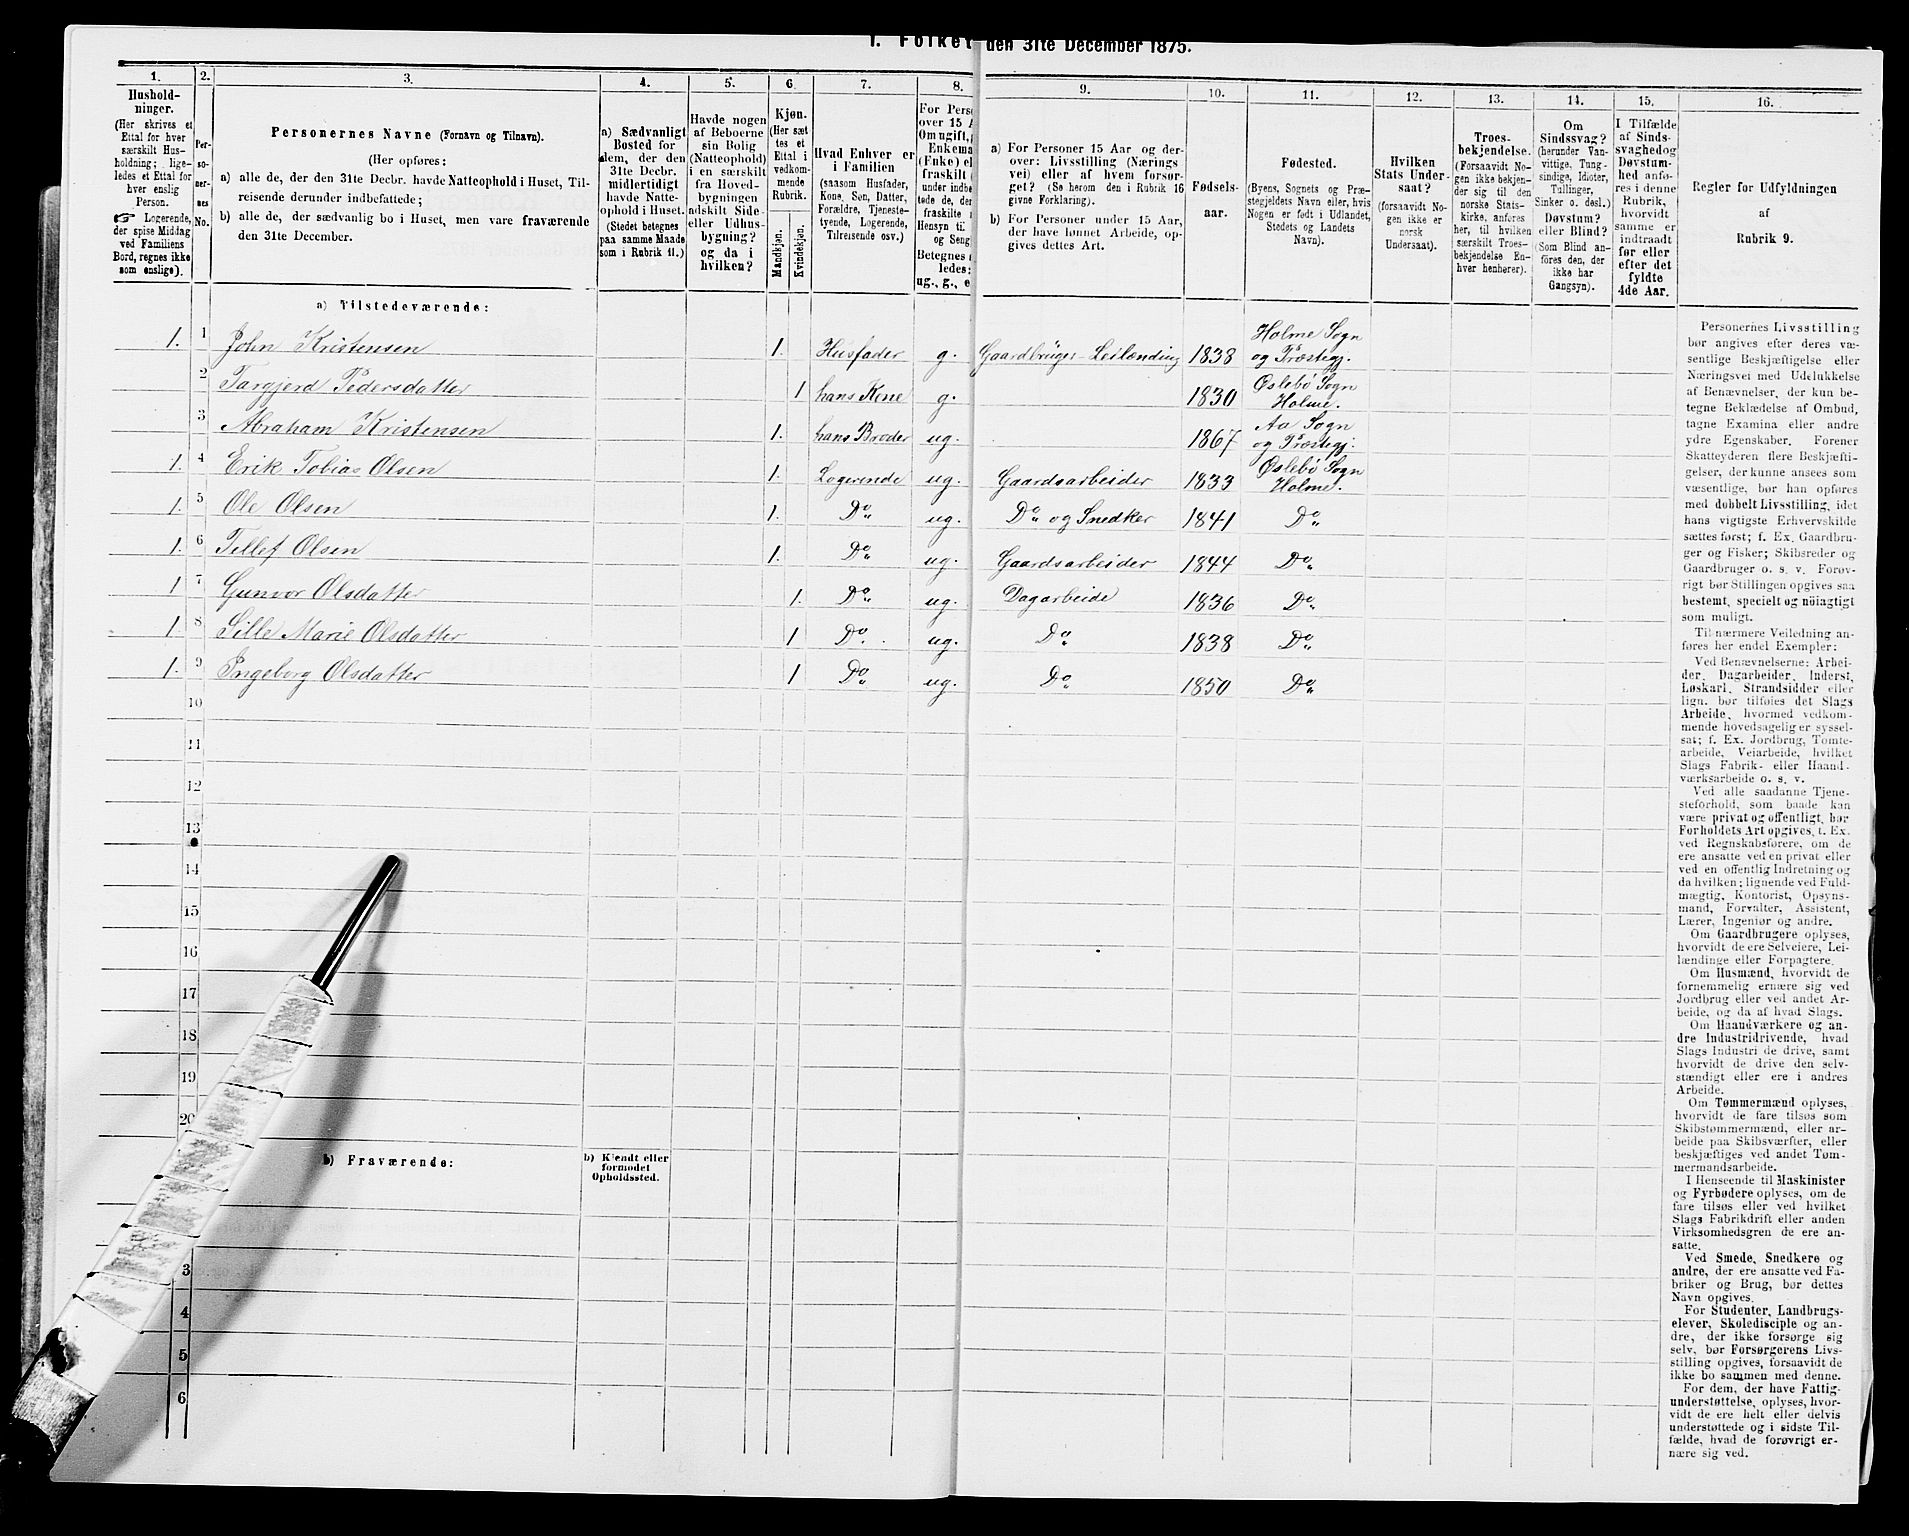 I. Folket den 31te December 1875.
1. 2. 3. 4. 5. 6. 7. 8. 9. 10. 11. 12. 13. 14. 15. 16.
Hushold-
ninger.
(Her skrives et
Ettal for hver
særskilt Hus-
holdning; lige-
ledes et Ettal for
hver enslig
Person.
☞ Logerende,
der spise Middag
ved Familiens
Bord, regnes ikke
som enslige).
Per-
so-
ner-
nes
No.
Personernes Navne (Fornavn og Tilnavn).
(Her opføres:
a) alle de, der den 31te Decbr. havde Natteophold i Huset, Til-
reisende derunder indbefattede;
b) alle de, der sædvanlig bo i Huset, men vare fraværende
den 31te December.
a) Sædvanligt
Bosted for
dem, der den
31te Decbr.
midlertidigt
havde Natte-
ophold i Huset.
(Stedet betegnes
paa samme Maade
som i Rubrik 11.)
Havde nogen
af Beboerne
sin Bolig
(Natteophold)
i en særskilt
fra Hoved-
bygningen
adskilt Side-
eller Udhus-
bygning?
og da i
hvilken?
Kjøn.
(Her sæt
tes et
Ettal i
vedkom-
mende
Rubrik.
Mandkjøn.
Kvindekjøn.
Hvad Enhver er
i Familien
(saasom Husfader,
Kone, Søn, Datter,
Forældre, Tjeneste-
tyende, Logerende,
Tilreisende osv.)
For Perso
over 15 A
Om ugift,
Enkema
(Fnke) el
fraskilt
under indbe
tede de, der
fraskilte
Hensyn til
og Seng
Betegnes
ledes:
ug., g., e
a) For Personer 15 Aar og der-
over: Livsstilling (Nærings
vei) eller af hvem forsør-
get? (Se herom den i Rubrik 16
givne Forklaring).
b) For Personer under 15 Aar,
der have lønnet Arbeide, op-
gives dettes Art.
Fødsels-
aar.
Fødested.
(Byens, Sognets og Præ-
stegjeldets Navn eller, hvis
Nogen er født i Udlandet,
Stedets og Landets
Navn).
Hvilken
Stats Under-
saat?
(forsaavidt No-
gen ikke er
norsk
Undersaat).
Troes-
bekjendelse.
(Forsaavidt No-
gen ikke bekjen-
der sig til den
norske Stats-
kirke, anføres
her, til hvilken
særskilt Troes-
bekjendelse En-
hver henhører).
Om
Sindssvag?
(herunder Van-
vittige, Tung-
sindige, Idioter,
Tullinger,
Sinker o. desl.)
Døvstum?
eller Blind?
(Som Blind an-
føres den, der
ikke har
Gangsyn).
I Tilfælde
af Sinds-
svaghed og
Døvstum-
hed anfø-
res i denne
Rubrik,
hvorvidt
samme er
indtraadt
før eller
efter det
fyldte
4de Aar.
Regler for Udfyldningen
af
Rubrik 9.
a) Tilstedeværende:
1. 1 John Kristensen 1. Husfader g. Gaardbrüger-Leilænding 1838 Holme Sogn
og Præstegj.
2 Targjerd Pedersdatter 1 hans Kone g. 1830 Øslebö Sogn
Holme.
3 Abraham Kristensen 1. hans Broder ug. 1867 Aa Sogn
og Præstegj.
1. 4 Erik Tobias Olsen 1. Logerende ug. Gaardsarbeider 1833 Øslebö Sogn
Holme.
1. 5 Ole Olsen 1. Do ug. Do og Snedker 1841 Do
1. 6 Tellef Olsen 1. Do ug. Gaardsarbeider 1844 Do
1 7 Gunvor Olsdatter 1. Do ug. Dagarbeide 1836 Do
1. 8 Sille Marie Olsdatter 1 Do ug. Do 1838 Do
1. 9 Engeborg Olsdatter 1 Do ug. Do 1850 Do
10
11
12
13
14
15
16
17
18
19
20
b) Fraværende:
b) Kjendt eller
formodet
Opholdssted.
3
4
5
6
Personernes Livsstilling
bør angives efter deres væ-
sentlige Beskjæftigelse eller
Næringsvei med Udelukkelse
af Benævnelser, der kun be-
tegne Beklædelse af Ombud,
tagne Examina eller andre
ydre Egenskaber. Forener
Skatteyderen flere Beskjæfti-
gelser, der kunne ansees som
væsentlige, bør han opføres
med dobbelt Livsstilling, idet
hans vigtigste Erhvervskilde
sættes først; f. Ex. Gaardbru-
ger og Fisker; Skibsreder og
Gaardbruger o. s. v. Forøv-
rigt bør Stillingen opgives saa
bestemt, specielt og nöiagtigt
som muligt.
Til nærmere Veiledning an-
føres her endel Exempler:
Ved Benævnelserne: Arbei-
der, Dagarbeider, Inderst,
Løskarl, Strandsidder eller
lign. bør tilføies det Slags
Arbeide, hvormed vedkom-
mende hovedsagelig er syssel-
sat; f. Ex. Jordbrug, Tomte-
arbeide, Veiarbeide, hvilket
Slags Fabrik- eller Haand-
værksarbeide o. s. v.
Ved alle saadanne Tjene-
steforhold, som baade kan
være privat og offentligt, bør
Forholdets Art opgives, t. Ex.
ved Regnskabsførere, om de
ere ansatte ved en privat eller
ved en offentlig Indretning og
da hvilken; lignende ved Fuld-
mægtig, Kontorist, Opsyns-
mand, Forvalter, Assistent,
Lærer, Ingeniør og andre.
Om Gaardbrugere oplyses,
hvorvidt de ere Selveiere, Lei-
lændinge eller Forpagtere.
Om Husmænd, hvorvidt de
fornemmelig ernære sig ved
Jordbrug eller ved andet Ar-
beide, og da af hvad Slags.
Om Haandværkere og an-
dre Industridrivende, hvad
Slags Industri de drive, samt
hvorvidt de drive den selv-
stændigt eller ere i andres
Arbeide.
Om Tømmermænd oplyses,
hvorvidt de fare tilsøs som
Skibstømmermænd, eller ar-
beide paa Skibsværfter, eller
beskjæftiges ved andet Tøm-
mermandsarbeide.
I Henseende til Maskinister
og Fyrbødere oplyses, om de
fare tilsøs eller ved hvilket
Slags Fabrikdrift eller anden
Virksomhedsgren de ere an-
satte.
Ved Smede, Snedkere og
andre, der ere ansatte ved Fa-
briker og Brug, bør dettes
Navn opgives.
For Studenter, Landbrugs-
elever, Skoledisciple og an-
dre, der ikke forsørge sig
selv, bør Forsørgerens Livs-
stilling opgives, forsaavidt de
ikke bo sammen med denne.
For dem, der have Fattig-
understøttelse, oplyses, hvor-
vidt de ere helt eller delvis
understøttede og i sidste Til-
fælde, hvad de forøvrigt er-
nære sig ved.